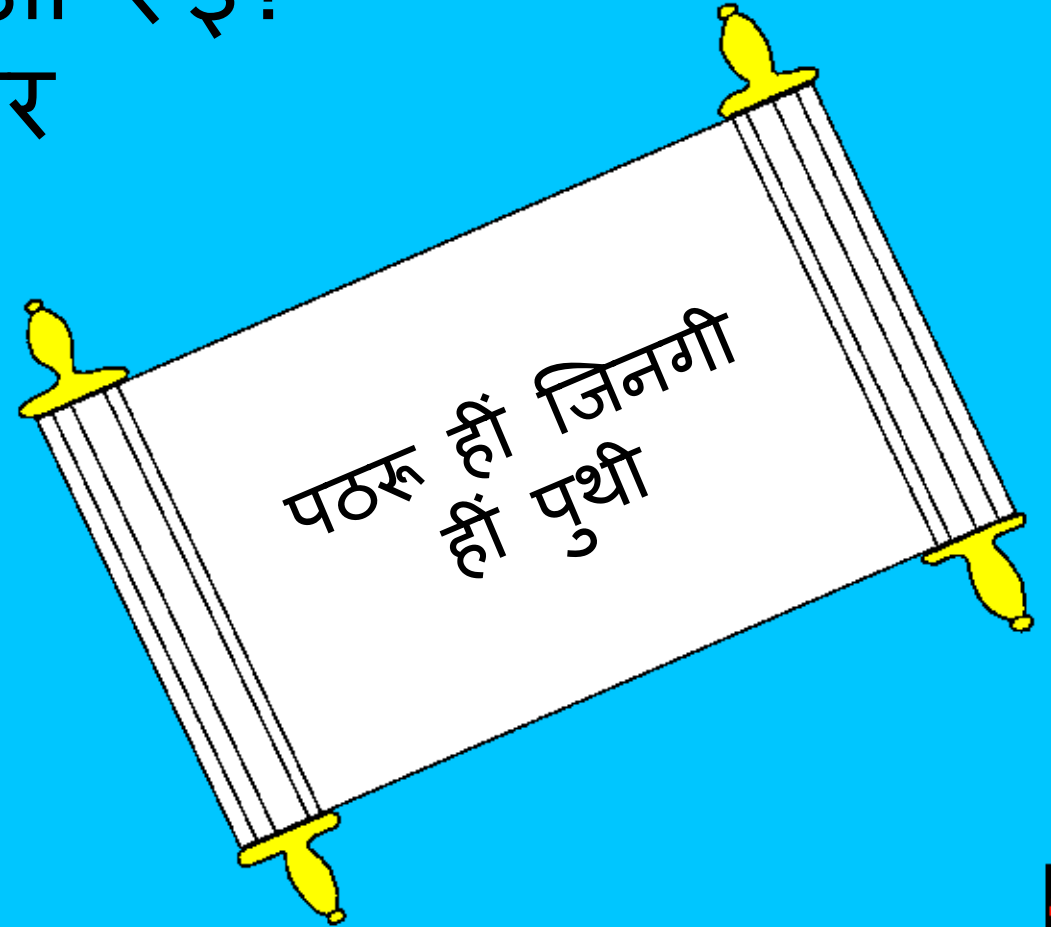 र
पठरू हीं जिनगी
हीं पुथी